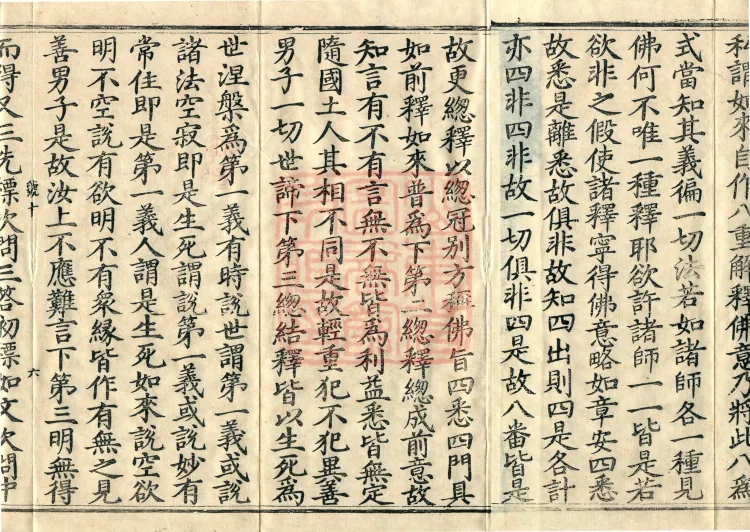 私謂如來自作八重解釋佛意不將此八為
式當知其義徧一切法若如諸師各一種見
佛何不唯一種釋耶欲許諸師一一皆是若
欲非之假使諸釋寧得佛意略如章安四悉
故悉是離悉故俱非故知四出則四是各計
亦四非四非故一切俱非四是故八番皆是
故更總釋以總冠別方稱佛旨四悉四門具
如前釋如來普為下第二總釋總成前意故
知言有不有言無不無皆為利益悉皆無定
隨國土人其相不同是故輕重犯不犯異善
男子一切世諦下第三總結釋皆以生死為
世涅槃爲第一義有時說世謂第一義或說
諸法空寂即是生死謂說第一義或說妙有
常住即是第一義人謂是生死如來說空欲
明不空說有欲明不有衆緣皆作有無之見
善男子是故汝上不應難言下第三明無得
號十
六
而得又三先標次問三答初標如文次問中